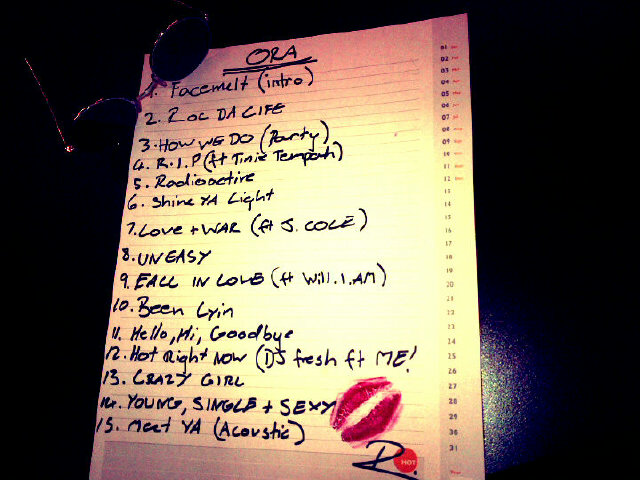 ORA
1. Facemelt (intro)
2. ROC DA LIFE
3. HOW WE DO (Party)
4. R.I.P (ft Tinie Tempah)
5. Radioactive
6. Shine YA Light
7. Love + WAR (ft J. COLE)
8. UNEASY
9. FALL IN LOVE (ft Will.I.AM)
10. Been Lyin
11. Hello, Hi, Goodbye
12. Hot Right NOW (DJ fresh ft ME!
13. CRAZY GIRL
14. YOUNG, SINGLE + SEXY
15. Meet YA (Acoustic)
R.
HOT
01
02
03
04
05
06
07
08
09
10
11
12
13
14
15
16
17
18
19
20
21
22
23
24
25
26
27
28
29
30
31